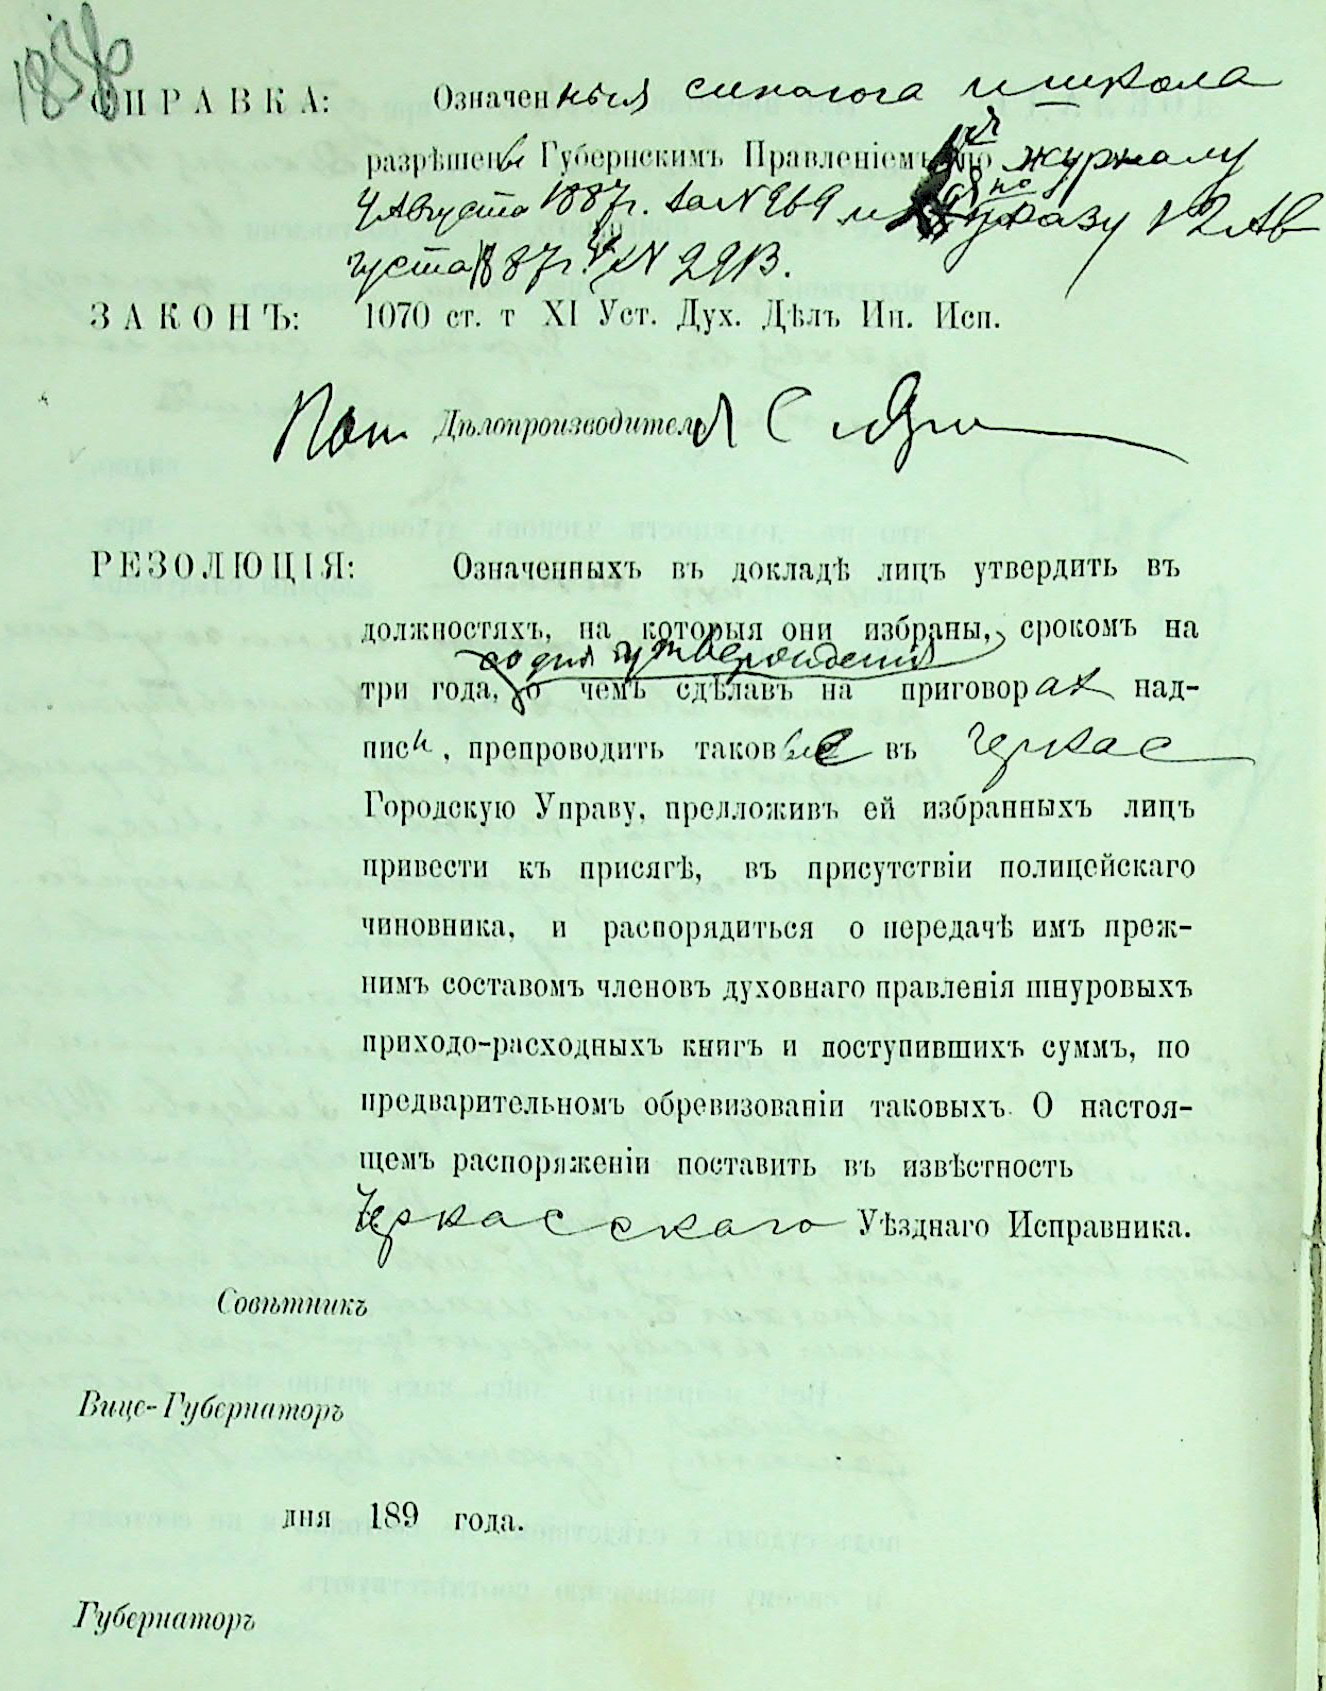 СПРАВКА: Означенныя синагога и школа
разрѣшены Губернскимъ Правленіемъ по журналу
4 Августа 1887 г. за N 969 и по указу 12 Ав
густа 1887 г. N 2913.
ЗАКОНЪ: 1070 ст. т XI Уст. Дух. Дѣлъ Ин. Исп.
Пом. Дѣлопроизводителя
РЕЗОЛЮЦІЯ: Означенныхъ въ докладѣ лицъ утвердить въ
должностяхъ, на которыя они избраны, срокомъ на
со дня утвержденія
три года, о чемъ сдѣлавъ на приговорах над-
писи, препроводить таковые въ Черкас
Городскую Управу, предложивъ ей избранныхъ лицъ
привести къ присягѣ, въ присутствіи полицейскаго
чиновника, и распорядиться о передачѣ имъ преж-
нимъ составомъ членовъ духовнаго правленія шнуровыхъ
приходо-расходныхъ книгъ и поступившихъ суммъ, по
предварительномъ обревизованіи таковыхъ. О настоя-
щемъ распоряженіи поставить въ извѣстность
Черкасскаго Уѣзднаго Исправника.
Совѣтникъ
Вице-Губернаторъ
дня 189 года.
Губернаторъ